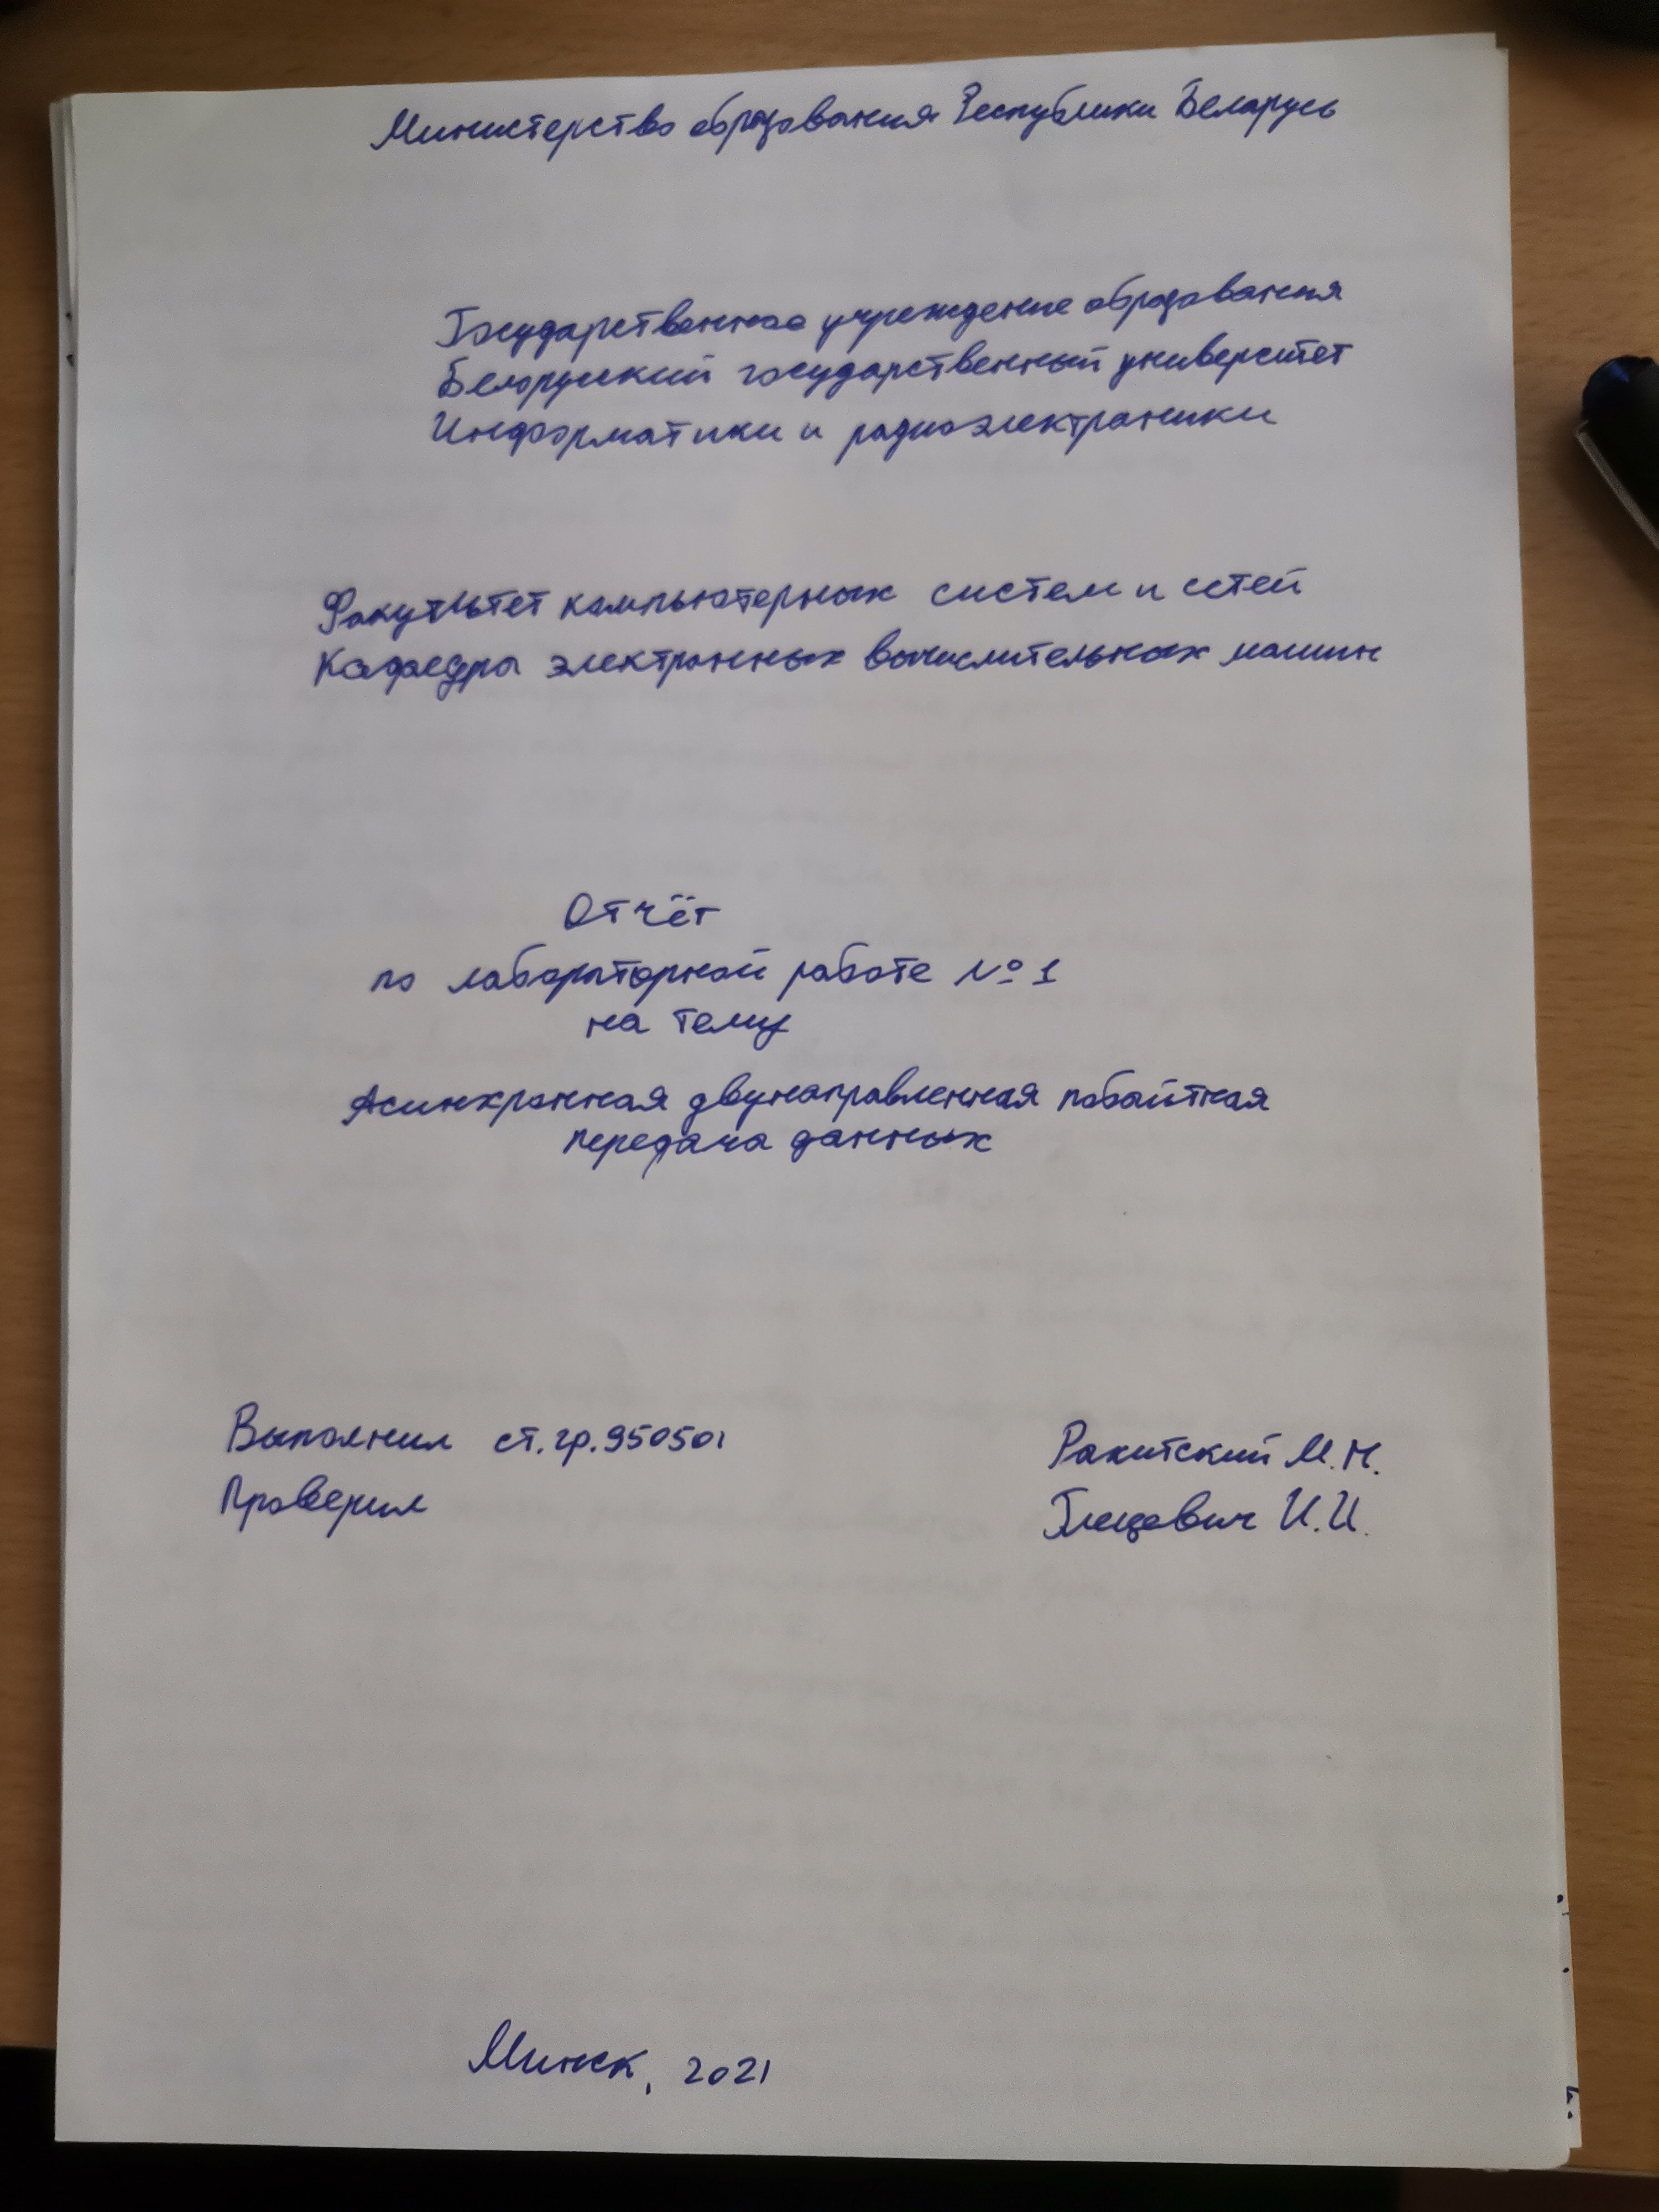 Министерство образования Республики Беларусь
Государственное учреждение образования
Белорусский государственный университет
Информатики и радиоэлектроники
Факультет компьютерных систем и сетей
Кафедра электронных вычислительных машин
Отчёт
по лабораторной работе №1
на тему
Асинхронная двунаправленная побайтная
передача данных
Выполнил ст. гр. 950501
Ракитский М.Н.
Проверил
Глецевич И.И.
Минск, 2021